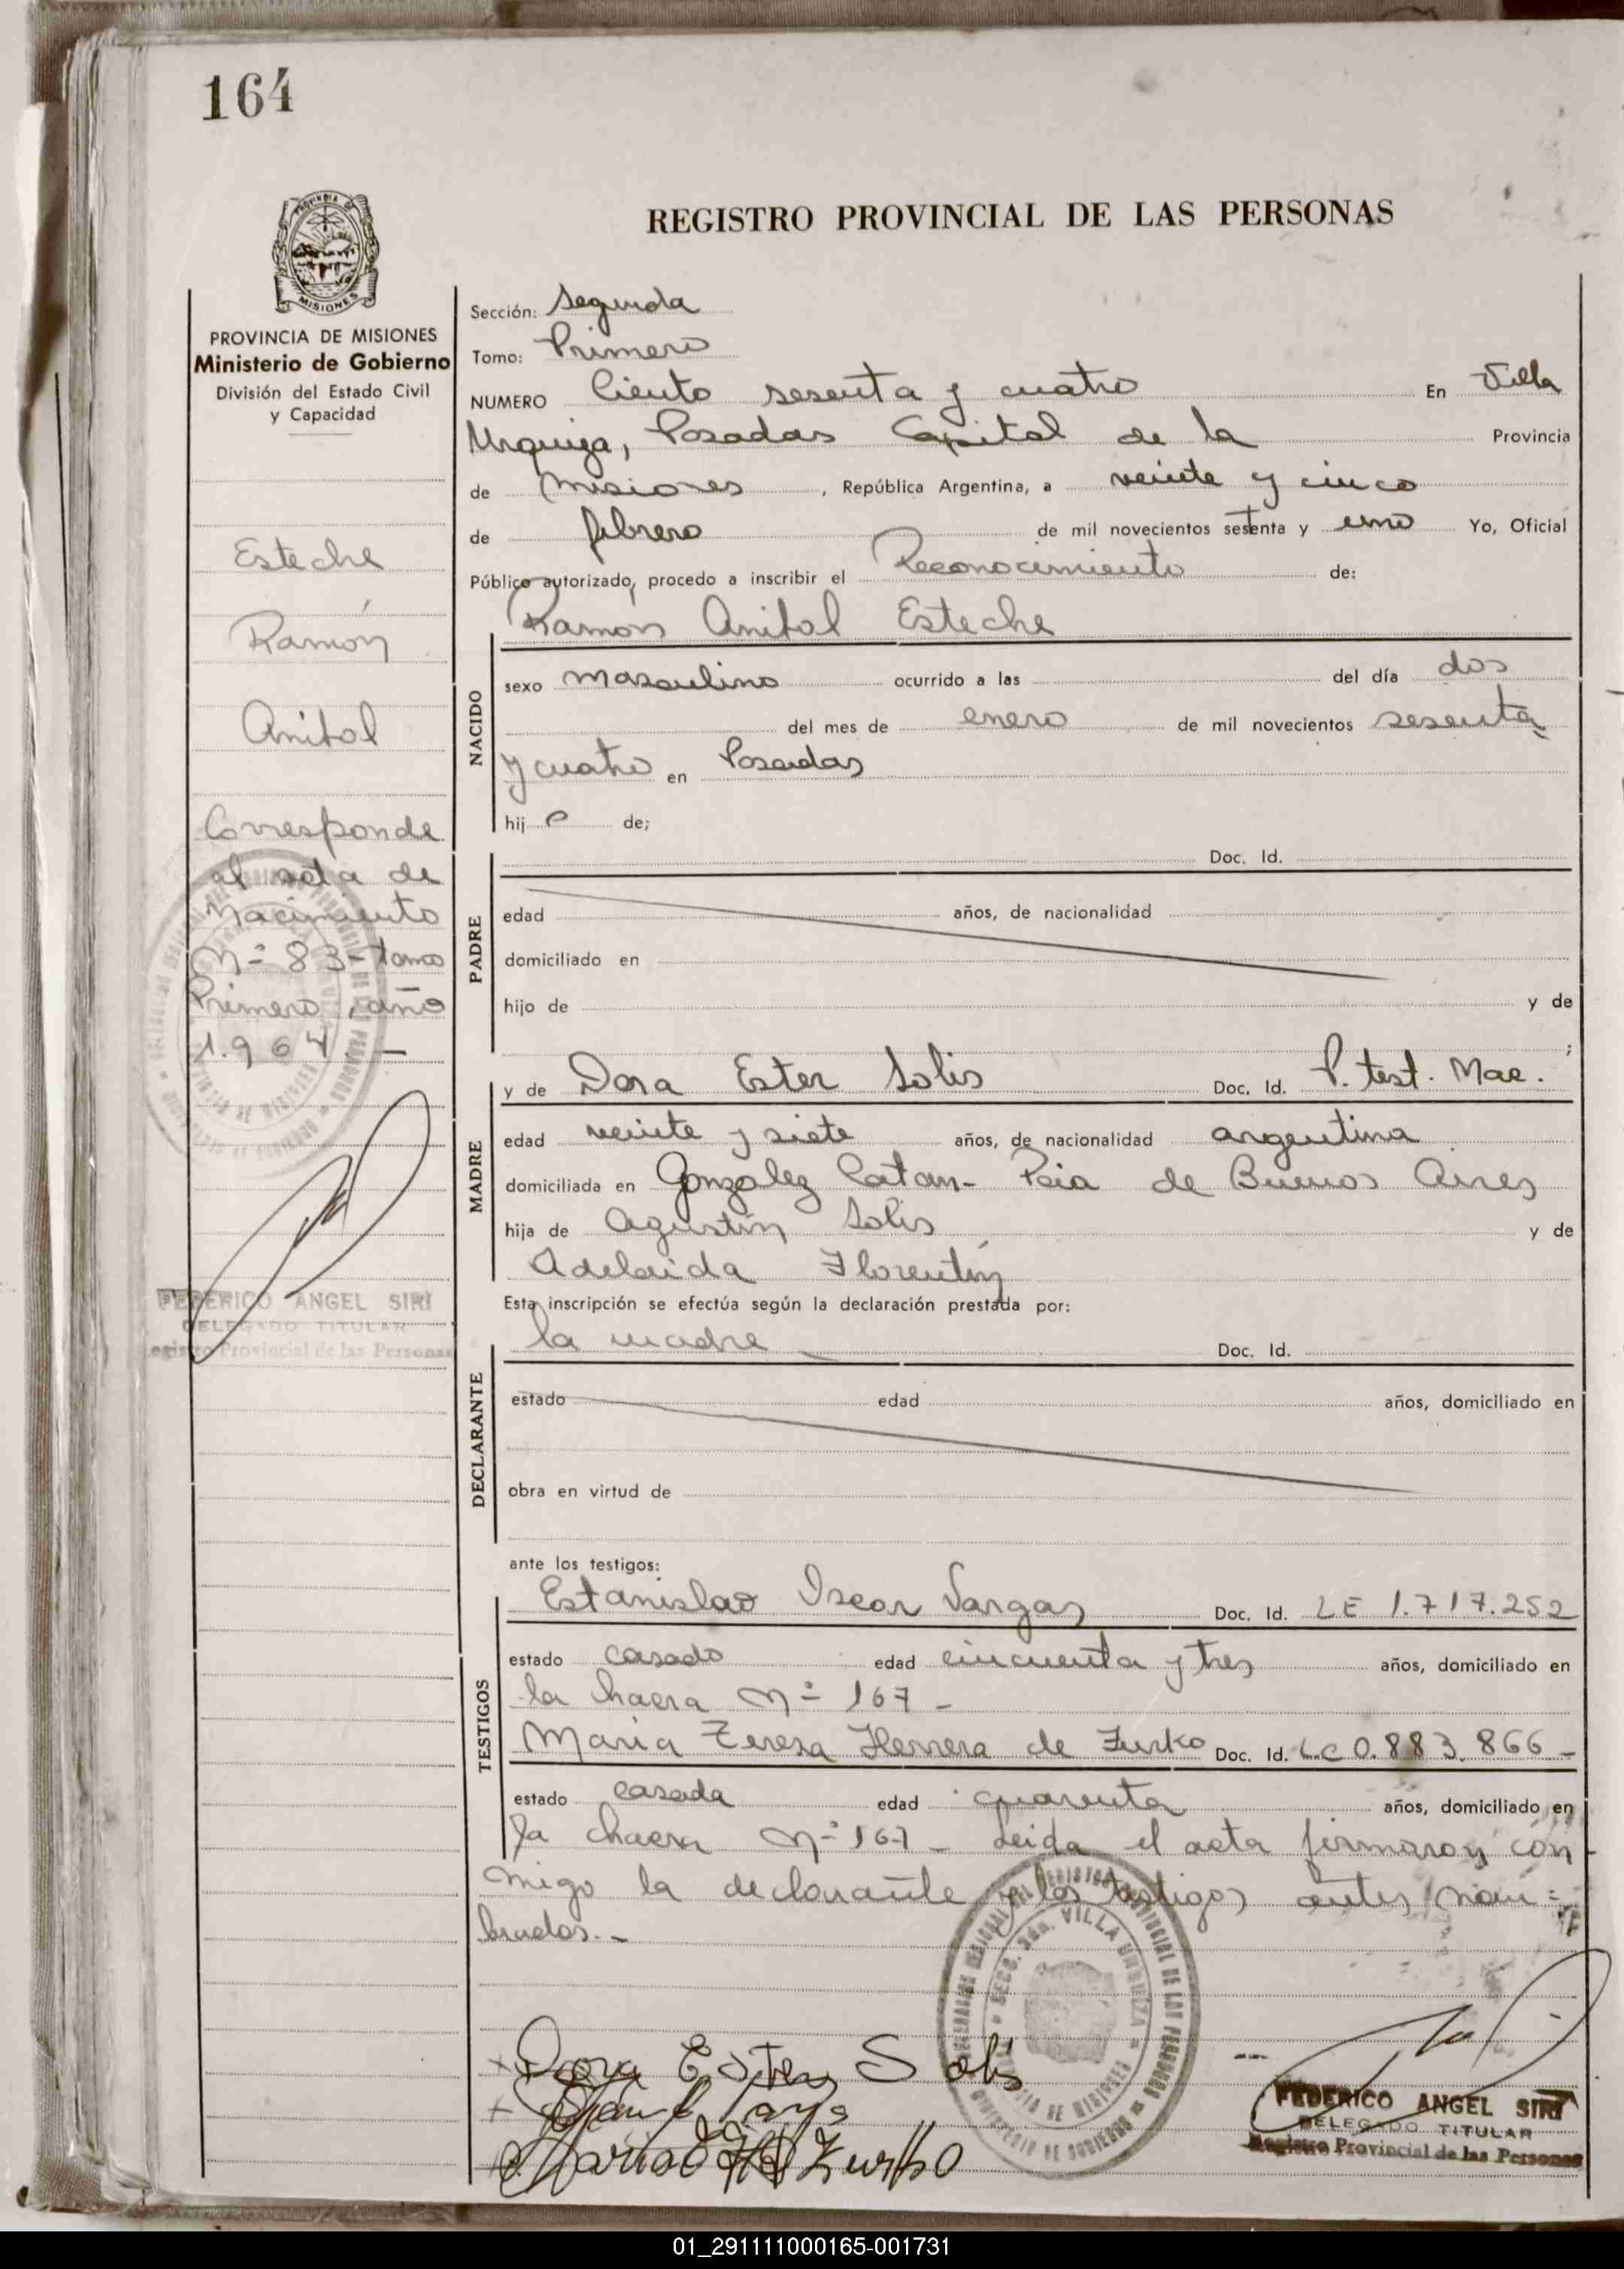 164
PROVINCIA DE MISIONES
Ministerio de Gobierno
División del Estado Civil
y Capacidad
Esteche
Ramón
Anibal
Corresponde
al acta de
Nacimiento
Nº 83 - tomo
Primero, año
1.964. -
FEDERICO ANGEL SIRI
DELEGADO TITULAR
Registro Provincial de las Personas
REGISTRO PROVINCIAL DE LAS PERSONAS
Sección: Segunda
Tomo: Primero
NUMERO Ciento sesenta y cuatro En Villa
Urquiza, Posadas Capital de la Provincia
de Misiones, República Argentina, a veinte y cinco
de febrero de mil novecientos setenta y uno Yo, Oficial
Público autorizado, procedo a inscribir el Reconocimiento de:
Ramón Anibal Esteche
NACIDO
sexo masculino ocurrido a las del día dos
del mes de enero de mil novecientos sesenta
y cuatro en Posadas
hijo de;
PADRE
Doc. Id.
edad años, de nacionalidad
domiciliado en
hijo de y de
;
MADRE
y de Dora Ester Solis Doc. Id. P. test. Mae.
edad veinte y siete años, de nacionalidad argentina
domiciliada en Gonzalez Catan - Pcia de Buenos Aires
hija de Agustín Solis y de
Adelaida Florentín
Esta inscripción se efectúa según la declaración prestada por:
DECLARANTE
la madre Doc. Id.
estado edad años, domiciliado en
obra en virtud de
ante los testigos:
TESTIGOS
Estanislao Oscar Vargas Doc. Id. LE 1.717.252
estado casado edad cincuenta y tres años, domiciliado en
la chacra Nº 167 -
Maria Tereza Herrera de Zurko Doc. Id. L.C 0.883.866 -
estado casada edad cuarenta años, domiciliado en
la chacra Nº 167 - Leida el acta firmaron con
migo la declarante y los testigos antes nom=
brados. -
Dora Ester Solis
FEDERICO ANGEL SIRI
DELEGADO TITULAR
Registro Provincial de las Personas
01_291111000165-001731